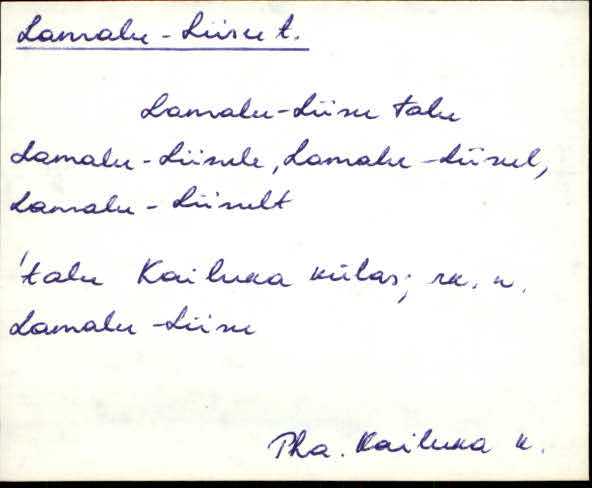 Lamalu-Liisu t.
Lamalu-Liisu talu
Lamalu-Liisule, Lamalu-Liisul,
Lamalu-Liisult
'talu Kailuka külas; rk. n.
Lamalu-Liisu
Pha. Kailuka k.